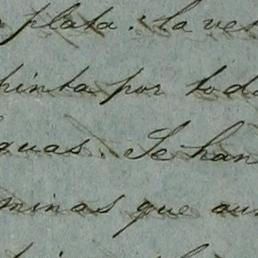 plata. La ve
pinta por tod
guas. Se han
minas que aun